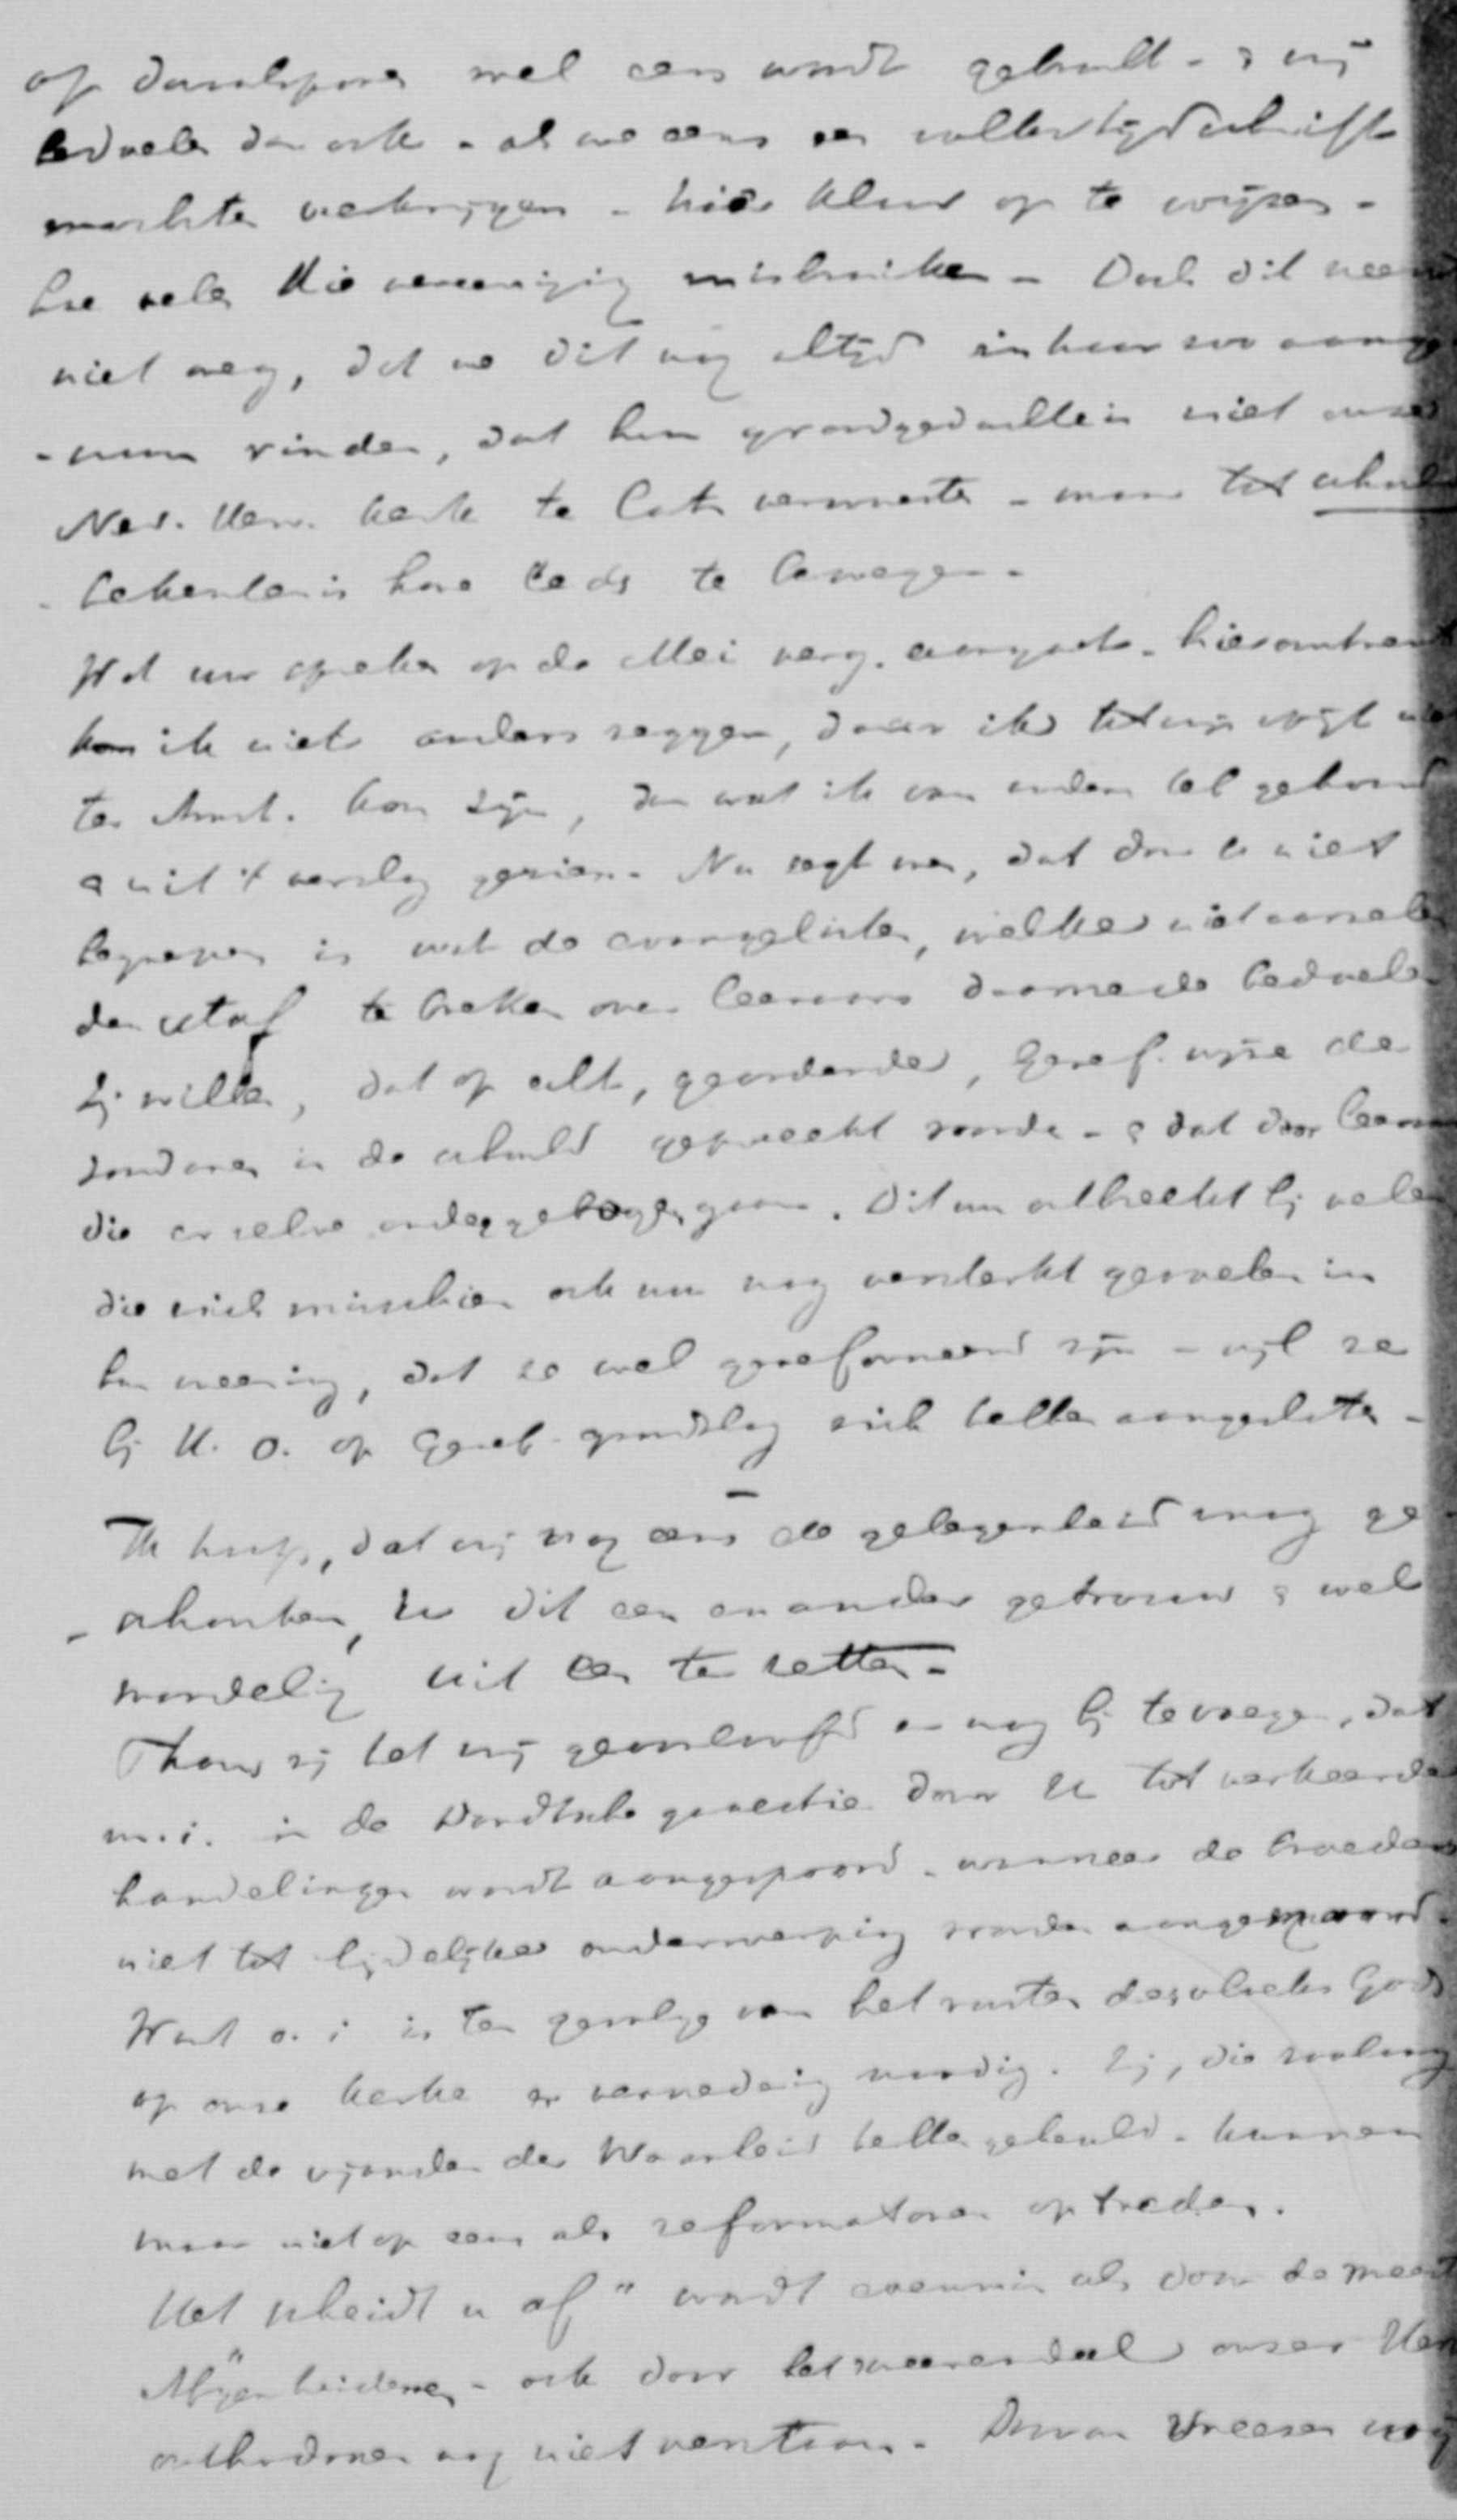 op dwaalsporen wel eens wordt gebracht - & wij
bedoelen dan ook - als we eens een voller tijdschrift
mochten verkrijgen - hier klaar op te wijzen -
hoe velen die vereeniging misbruiken - Doch dit neemt
niet weg, dat we dit nog altijd in haar zoo aange
-naam vinden, dat hun grondgedachte is niet onze
Ned. Herv. kerk te laten - maar tot schuld
- bekentenis hare leden te bewegen -
Wat uw spreken op de Mei verg. aangaat - hieromtrent
kan ik niets anders zeggen, daar ik tot mijn spijt niet
te Amst. kon zijn, dan wat ik van anderen heb gehoord
& uit 't verslag gezien. Nu zegt men, dat door U niet
begrepen is wat de evangelisten, welke niet aarzelen
den staf te breken over leeraars daarmede bedoelen
Zij willen, dat op echt, geordende, Geref. wijze de
zondaren in de schuld gepreekt worden - & dat door leeraars
die er zelve onder gebogen gaan. Dit nu ontbreekt bij velen
die zich misschien ook nu nog versterkt gevoelen in
hun meening, dat ze wel gereformeerd zijn - wijl ze
bij U. o. op Geref. grondslag zich hebben aangesloten -
-
Ik hoop, dat mij nog eens de gelegenheid mag ge
- schonken, U dit een en ander getrouw & wel
mondeling uit een te zetten -
Thans zij het mij geoorloofd er nog bij te voegen, dat
m. i. in de Dordtsche quaestie door U tot verkeerde
handelingen wordt aangespoord - wanneer de broeders
niet tot lijdelijke onderwerping worden aangemaand.
Want o. i. is ten gevolge van het rusten des vloeks Gods
op onze kerke er vernedering noodig. Zij, die zoolang
met de vijanden der Waarheid hebben geheuld - kunnen
maar niet op eens als reformatoren optreden.
Het scheidt u af" wordt evenmin als door de meeste
Afgescheidenen - ook door het meerendeel onzer Herv
orthodoxen nog niet verstaan. Daarom vreezen wij